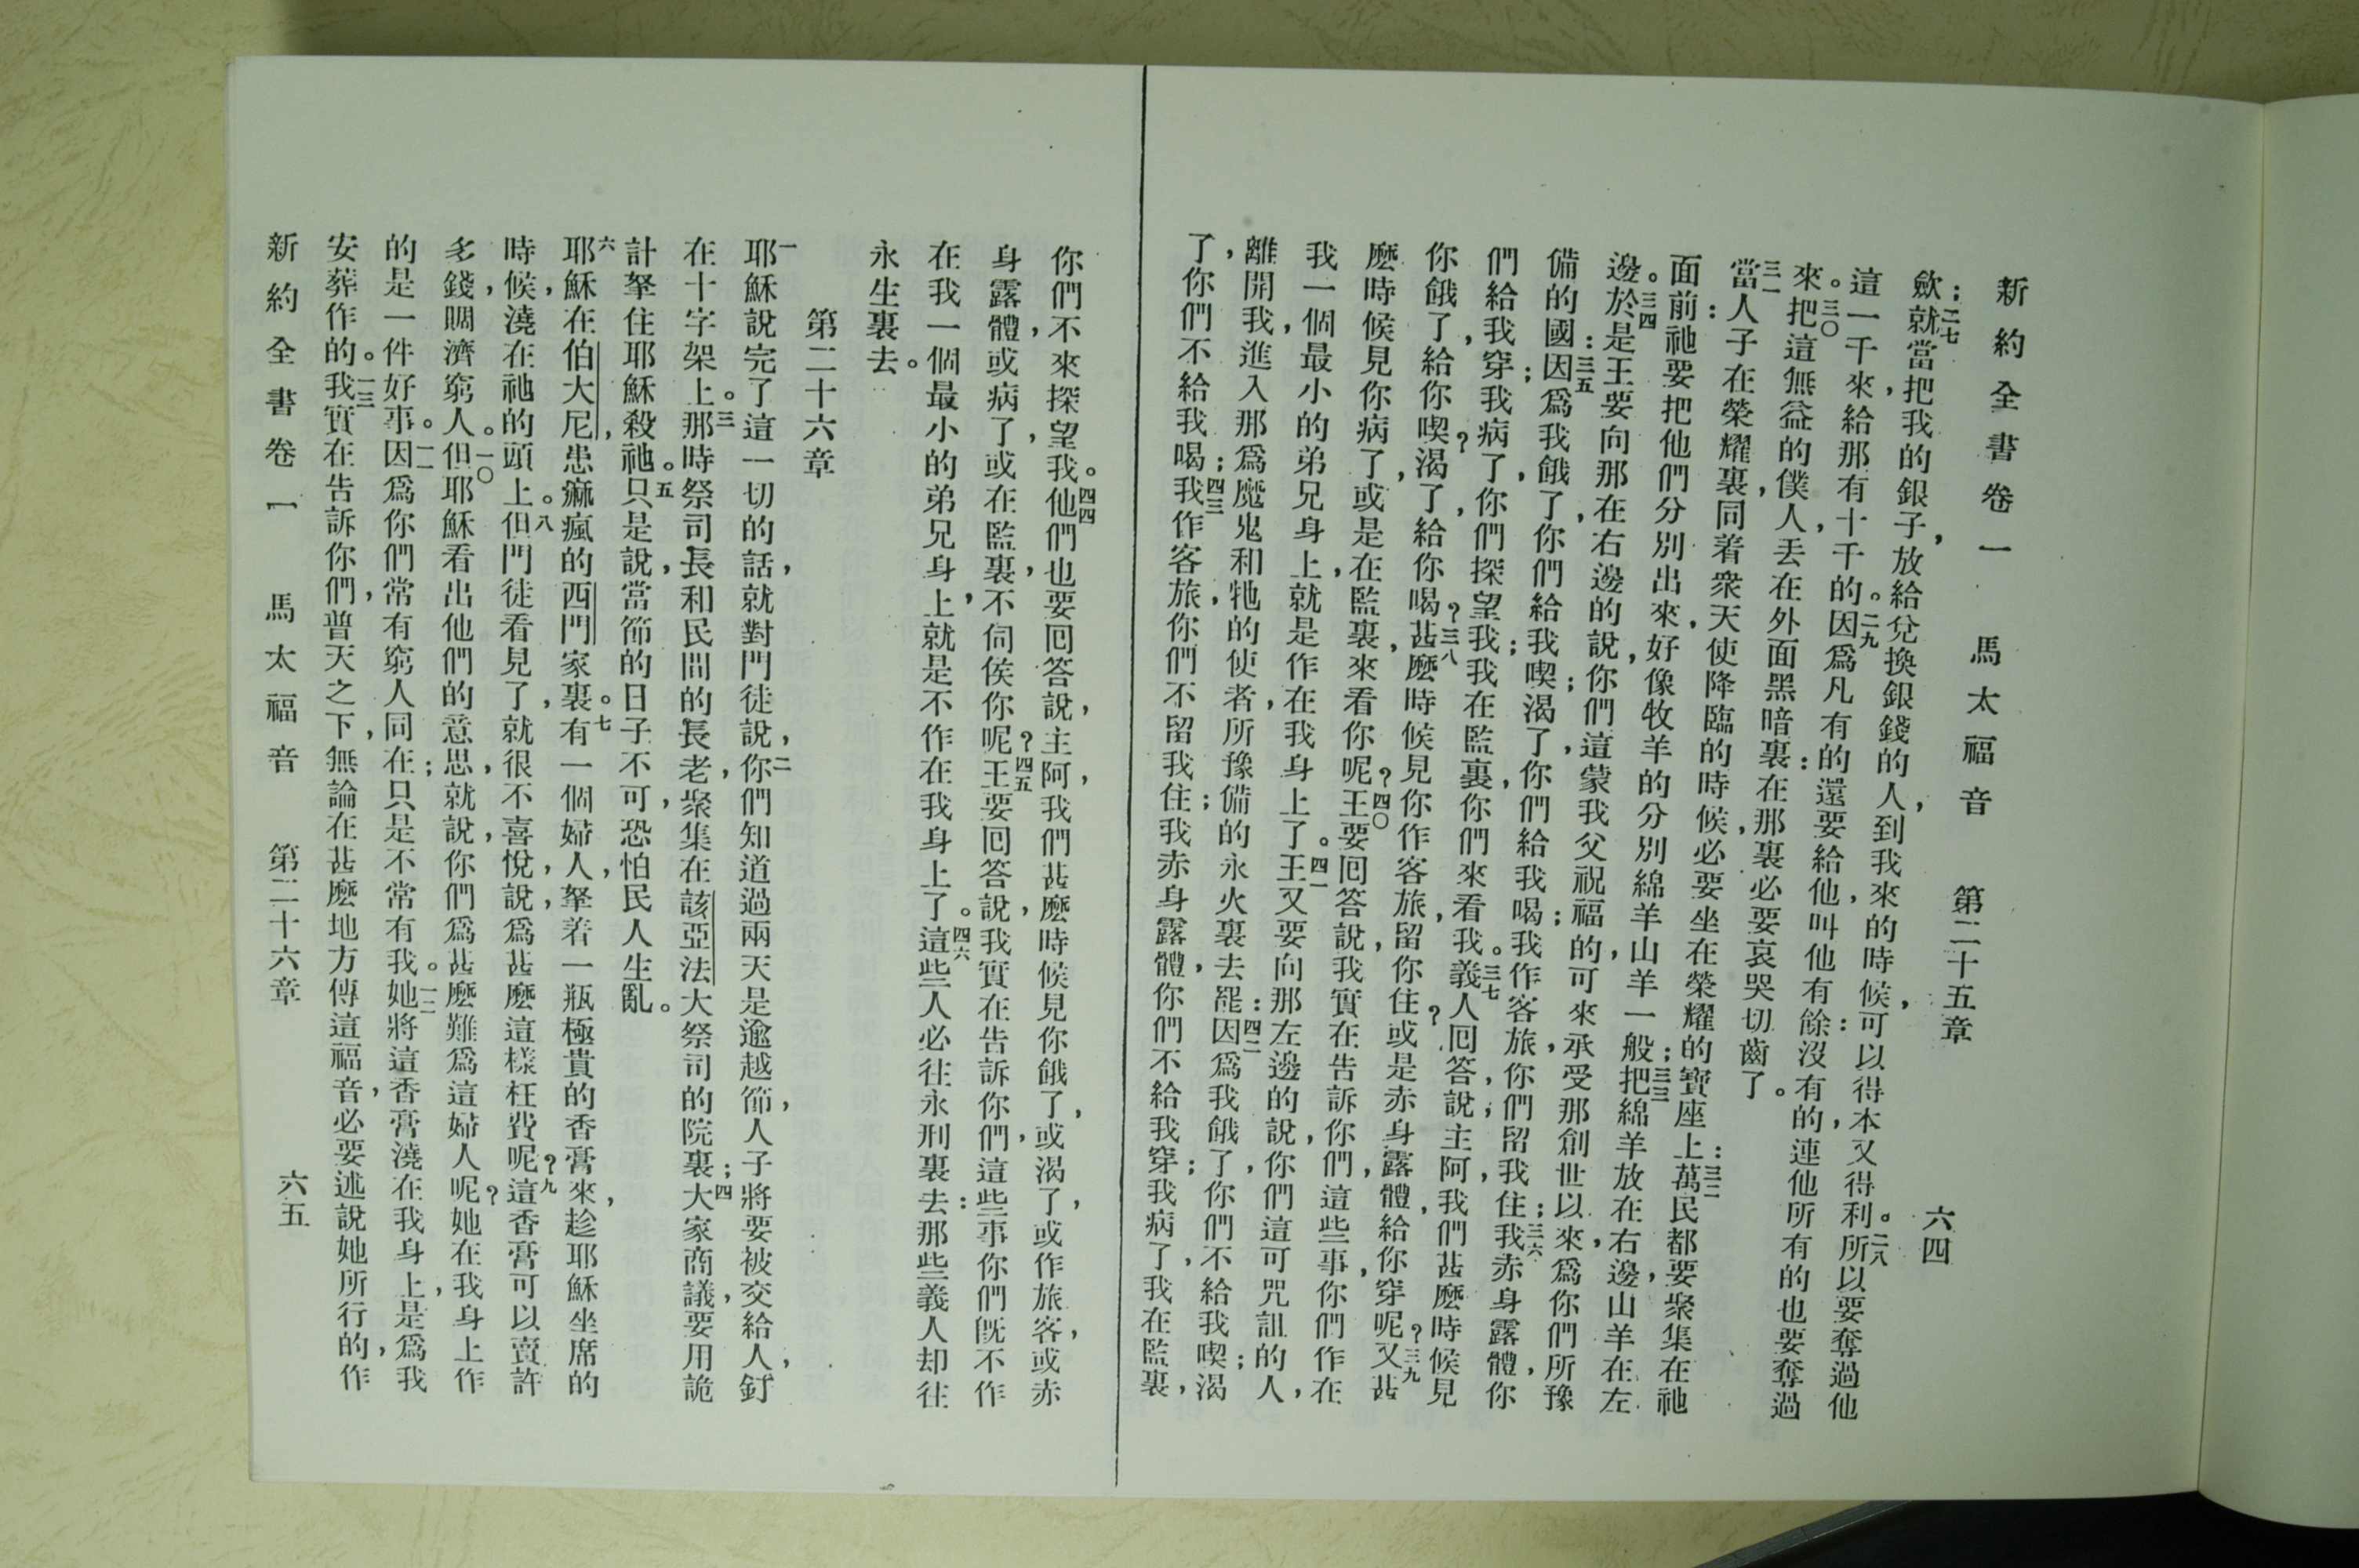 新約全書卷一　馬太福音　第二十五章　六四
歛；二七就當把我的銀子，放給兌換銀錢的人，到我來的時候，可以得本又得利。二八所以要奪過他
這一千來，給那有十千的。二九因爲凡有的，還要給他，叫他有餘：沒有的，連他所有的也要奪過
來。三〇把這無益的僕人，丟在外面黑暗裏：在那裏必要哀哭切齒了。
三一當人子在榮耀裏，同着衆天使降臨的時候，必要坐在榮耀的寶座上：三二萬民都要聚集在祂
面前：祂要把他們分別出來，好像牧羊的分別綿羊山羊一般；三三把綿羊放在右邊，山羊在左
邊。三四於是王要向那在右邊的說，你們這蒙我父祝福的，可來承受那創世以來，爲你們所豫
備的國：三五因爲我餓了，你們給我喫；渴了，你們給我喝；我作客旅，你們留我住；三六我赤身露體，你
們給我穿；我病了，你們探望我；我在監裏，你們來看我。三七義人囘答說，主阿，我們甚麼時候見
你餓了，給你喫？渴了，給你喝？三八甚麼時候見你作客旅，留你住？或是赤身露體，給你穿呢？三九又甚
麼時候見你病了，或是在監裏，來看你呢？四〇王要囘答說，我實在告訴你們，這些事，你們作在
我一個最小的弟兄身上，就是作在我身上了。四一王又要向那左邊的說，你們這可咒詛的人，
離開我，進入那爲魔鬼和牠的使者，所豫備的永火裏去罷：四二因爲我餓了，你們不給我喫；渴
了，你們不給我喝；四三我作客旅，你們不留我住；我赤身露體，你們不給我穿；我病了，我在監裏，
你們不來探望我。四四他們也要囘答說，主阿，我們甚麼時候見你餓了，或渴了，或作旅客，或赤
身露體，或病了，或在監裏，不伺侯你呢？四五王要囘答說，我實在告訴你們，這些事你們旣不作
在我一個最小的弟兄身上，就是不作在我身上了。四六這些人必往永刑裏去：那些義人却往
永生裏去。
第二十六章
一耶穌說完了這一切的話，就對門徒說，二你們知道過兩天是逾越節，人子將要被交給人，釘
在十字架上。三那時祭司長和民間的長老，聚集在該亞法大祭司的院裏；四大家商議，要用詭
計拏住耶穌殺祂。五只是說，當節的日子不可，恐怕民人生亂。
六耶穌在伯大尼，患痲瘋的西門家裏。七有一個婦人，拏着一瓶極貴的香膏來，趁耶穌坐席的
時候，澆在祂的頭上。八但門徒看見了，就很不喜悅，說，爲甚麼這樣枉費呢？九這香膏可以賣許
多錢，賙濟窮人。一〇但耶穌看出他們的意思，就說，你們爲甚麼難爲這婦人呢？她在我身上，作
的是一件好事。一一因爲你們常有窮人同在；只是不常有我。一二她將這香膏澆在我身上，是爲我
安葬作的。一三我實在告訴你們，普天之下，無論在甚麼地方傳這福音，必要述說她所行的，作
新約全書卷一　馬太福音　第二十六章　六五